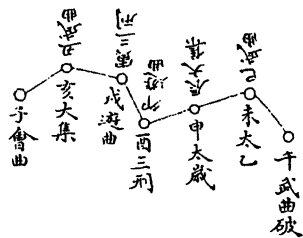 丑武曲
寅三刑
卯遊曲
辰大集
巳武曲
子會曲
亥大集
戌遊曲
酉三刑
申太歲
未太乙
午武曲破